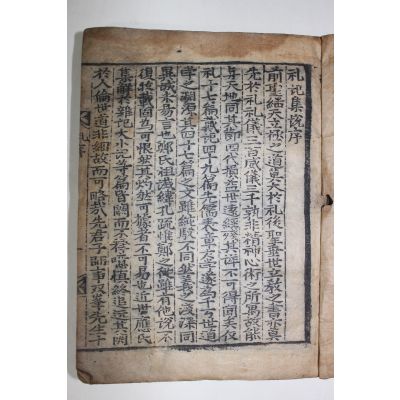 礼記集說序
前聖繼天立極之道莫大於礼後聖垂世立教之書亦莫
先於礼礼儀三百威儀三千孰非精神心術之所寓故能
与天地同其節四代損益世遠經残其詳不可得聞矣仪
礼十七篇戴記四十九篇先儒表章庸学遂為千万世道
学之渊源其四十七篇之文雖純駁不同然義之浅深同
異誠未易言也鄭氏祖讖緯孔疏惟鄭之從雖有他說不
復收載固為可恨然其灼然可據者不可易也近世應氏
集解於雜記大小記等篇皆闕而不釋噫慎終追遠其関
於人倫世道非細故而可略哉先君子師事双峯先生十